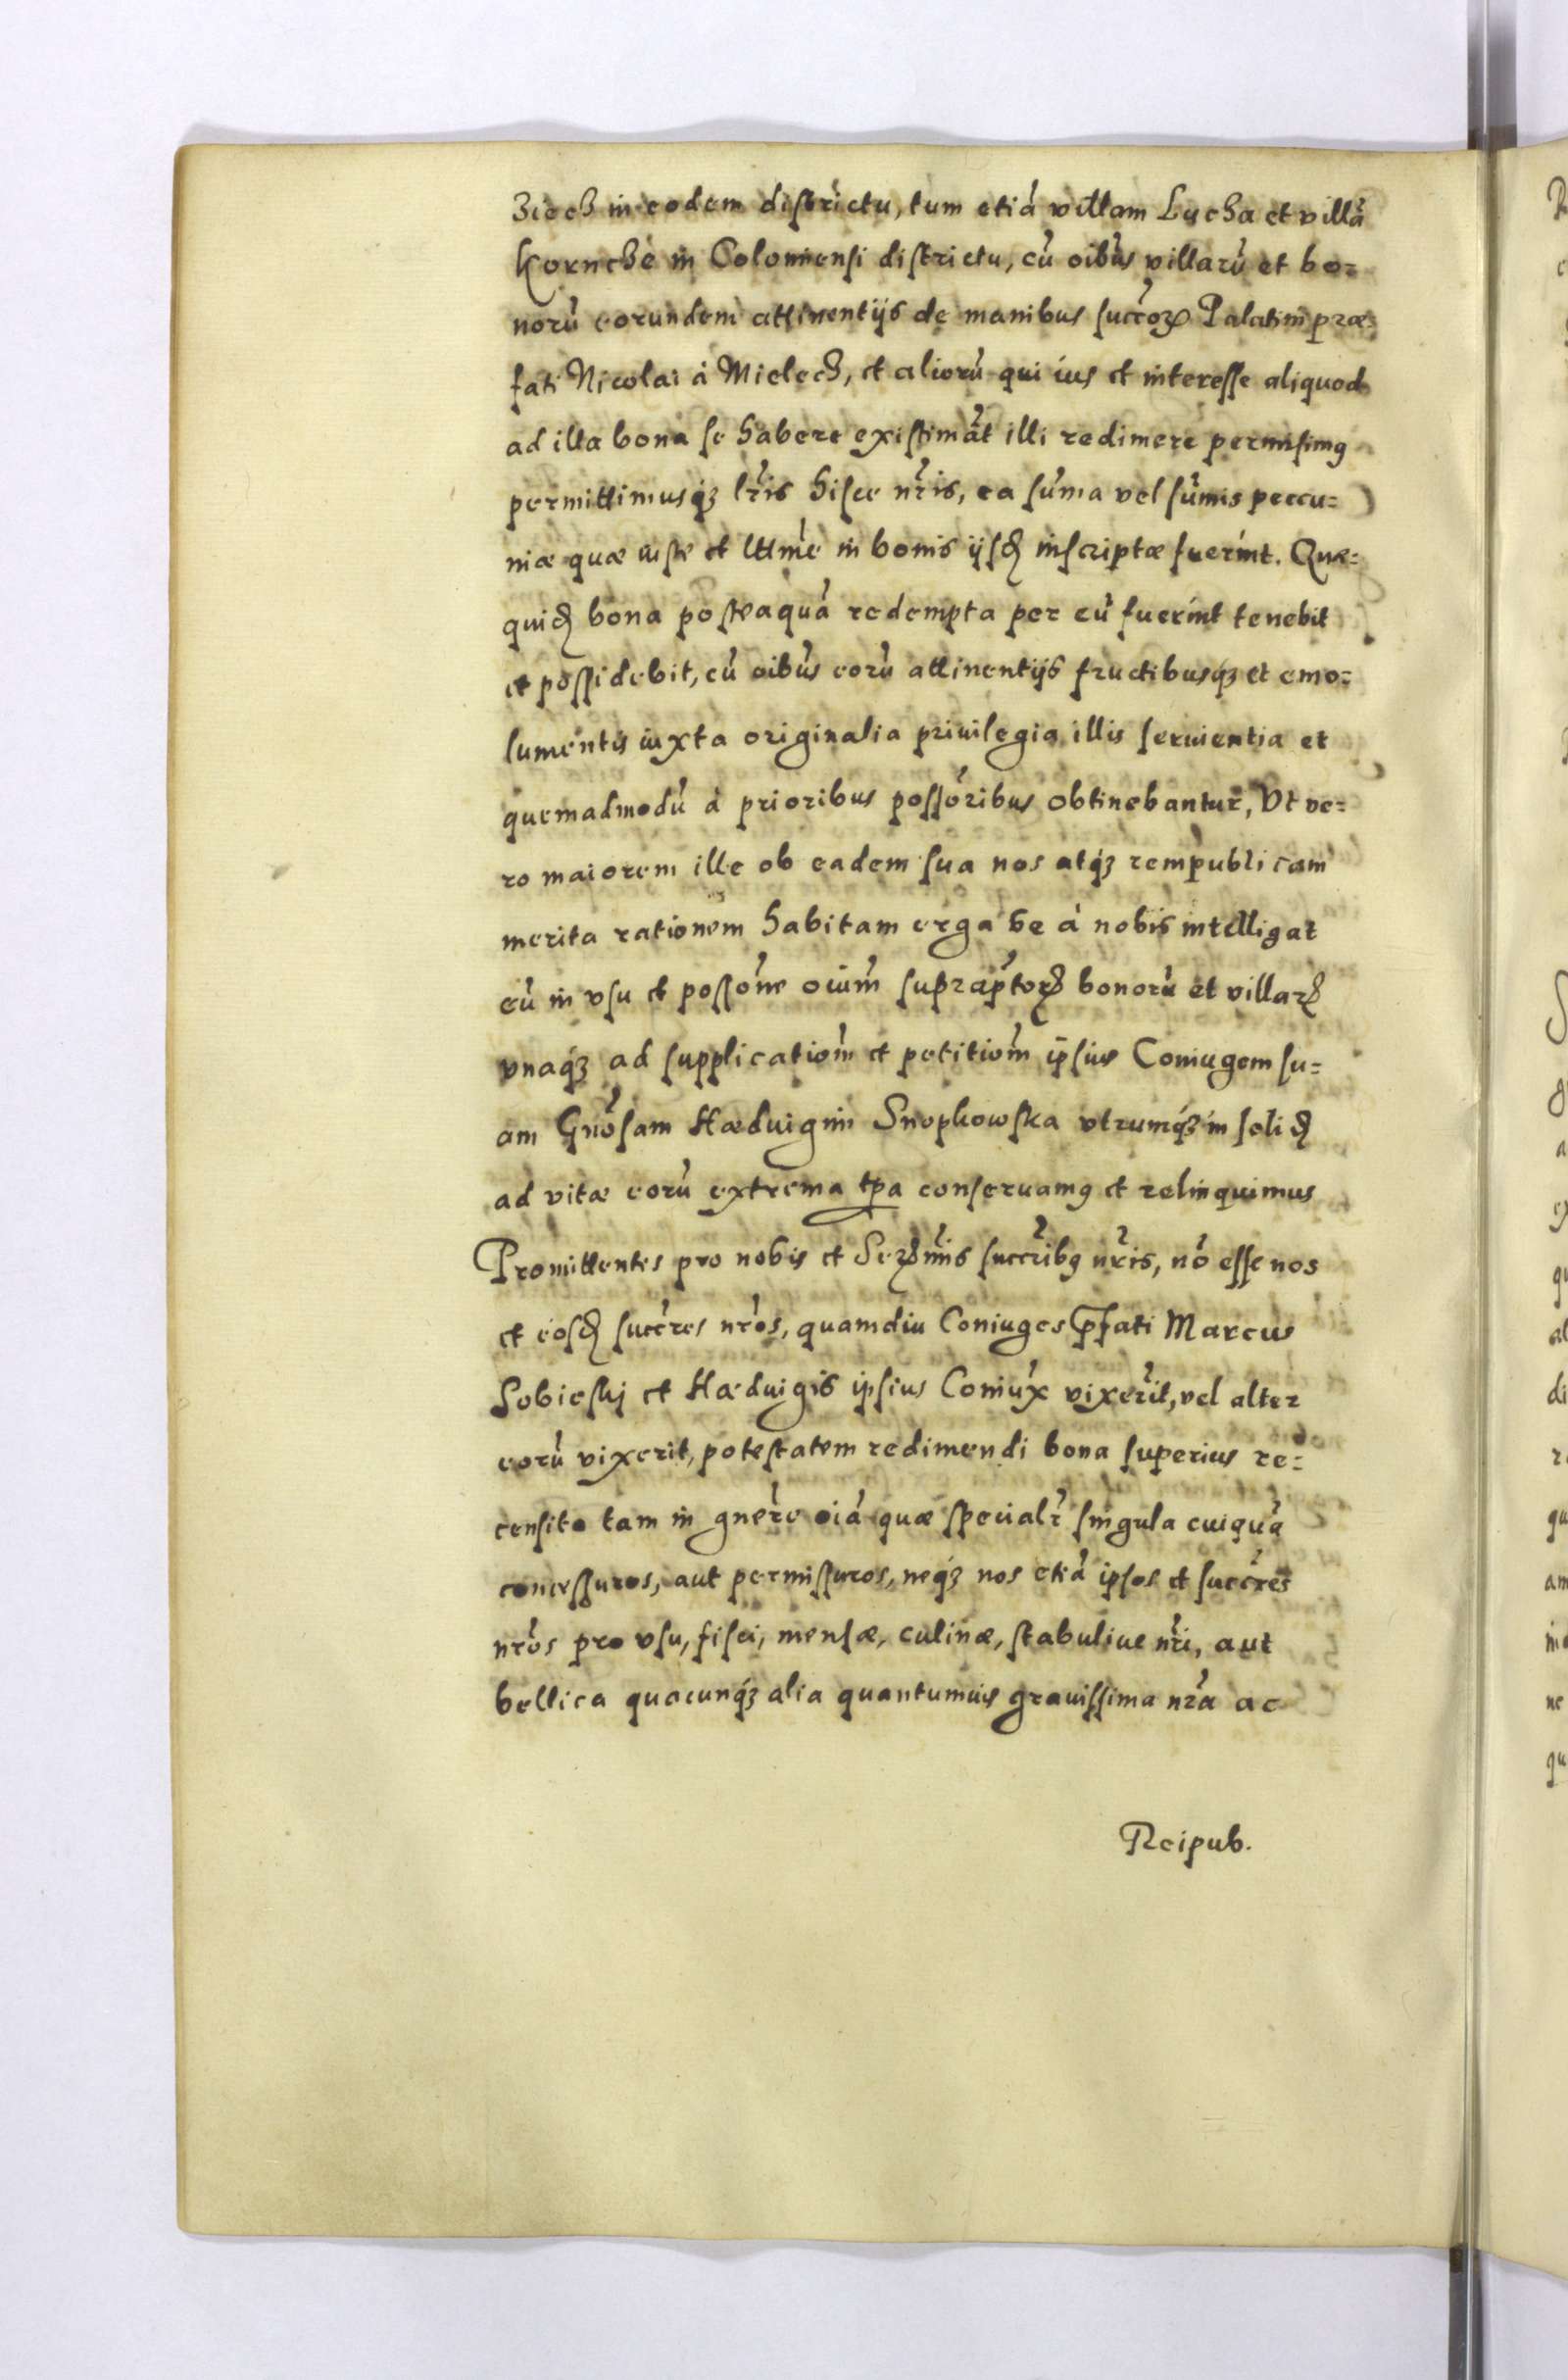 ziech in eodem districtu, tum etiá villam Lucha et villá
Kornche in Colomiensi districtu, cũ oibus villarũ et bo=
norũ eorundem attinentijs de manibus succoꝝ Palatini præ
fati Nicolai á Mielecz, et aliorũ qui ius et interesse aliquod
ad illa bona se habere existimãt illi redimere permisimꝰ
permittimusqꝫ lr̃is hisce nr̃is, ea sũma vel sũmis peccu=
niæ quæ iuste et lttme in bonis ijsđ inscriptæ fuerint. Quæ=
quiđ bona posteaquá redempta per eũ fuerint tenebit
et possidebit, cũ oibus eorũ attinentijs fructibusqꝫ et emo=
lumentis iuxta originalia priuilegia illis seruientia et
quemadmodũ á prioribus possoribus obtinebantur, Vt ve=
ro maiorem ille ob eadem sua nos atqꝫ rempublicam
merita rationem habitam erga se á nobis intelligat
eũ in vsu et possone oium supraptorꝝ bonorũ et villarꝝ
vnaqꝫ ad supplicatiom et petitiom ipsius Coniugem su=
am Gnosam Hæduigim Snopkowska vtrumqꝫ in soliđ
ad vitæ eorũ extrema tpa conseruamꝰ et relinquimus
Promittentes pro nobis et Serꝫmis succribꝰ nr̃is, nõ esse nos
et eosđ succres nr̃os, quamdiu Coniuges pfati Marcus
Sobieskj et Hæduigis ipsius Coniux vixerit, vel alter
eorũ vixerit, potestatem redimendi bona superius re=
censita tam in gnere oiá quæ specialr̃ singula cuiquá
concessuros, aut permissuros, neqꝫ nos etiá ipsos et succres
nr̃os pro vsu, fisci, mensæ, culinæ, stabuliue nr̃i, aut
bellica quacunqꝫ alia quantumuis grauissima nr̃a ac
Reipub.